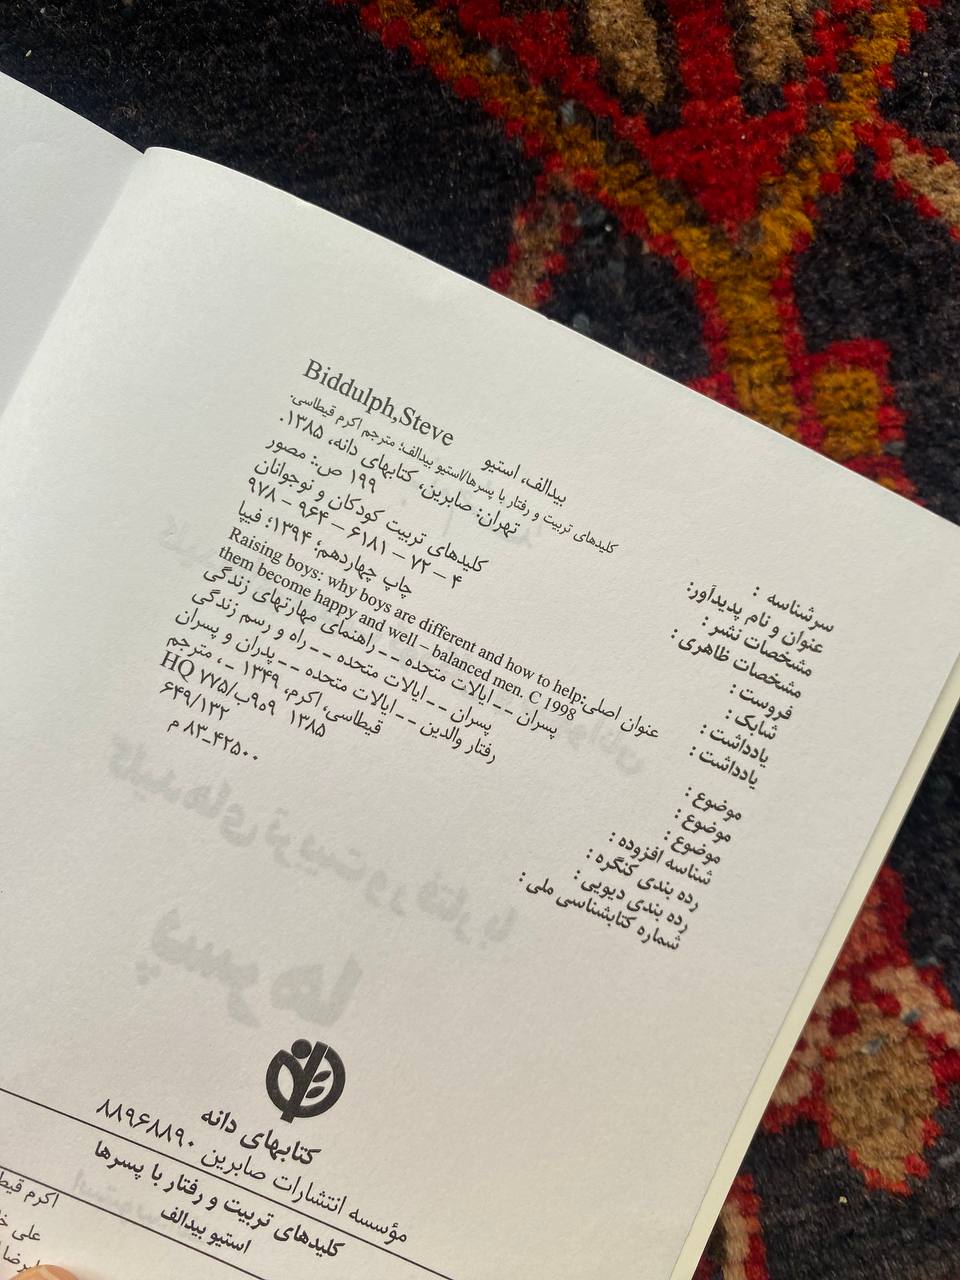 سرشناسه : بیدالف، استیو Biddulph,Steve
عنوان و نام پدیدآور: کلیدهای تربیت و رفتار با پسرها/استیو بیدالف؛ مترجم اکرم قیطاسی.
مشخصات نشر : تهران: صابرین، کتابهای دانه، ۱۳۸۵.
مشخصات ظاهری : ۱۹۹ ص.: مصور
فروست : کلیدهای تربیت کودکان و نوجوانان
شابک : ۹۷۸ – ۹۶۴ – ۶۱۸۱ – ۷۲ – ۴
یادداشت : چاپ چهاردهم؛ ۱۳۹۴؛ فیپا
یادداشت : عنوان اصلی: Raising boys: why boys are different and how to help
them become happy and well – balanced men. C 1998
موضوع : پسران -- ایالات متحده -- راهنمای مهارتهای زندگی
موضوع : پسران -- ایالات متحده -- راه و رسم زندگی
موضوع : رفتار والدین -- ایالات متحده -- پدران و پسران
شناسه افزوده : قیطاسی، اکرم، ۱۳۴۹ -، مترجم
رده بندی کنگره : ۱۳۸۵ ۹و۹ب/HQ ۷۷۵
رده بندی دیویی : ۶۴۹/۱۳۲
شماره کتابشناسی ملی : ۴۲۵۰۰-۸۳ م
کتابهای دانه
مؤسسه انتشارات صابرین ۸۸۹۶۸۸۹۰
کلیدهای تربیت و رفتار با پسرها
استیو بیدالف
اکرم
علی